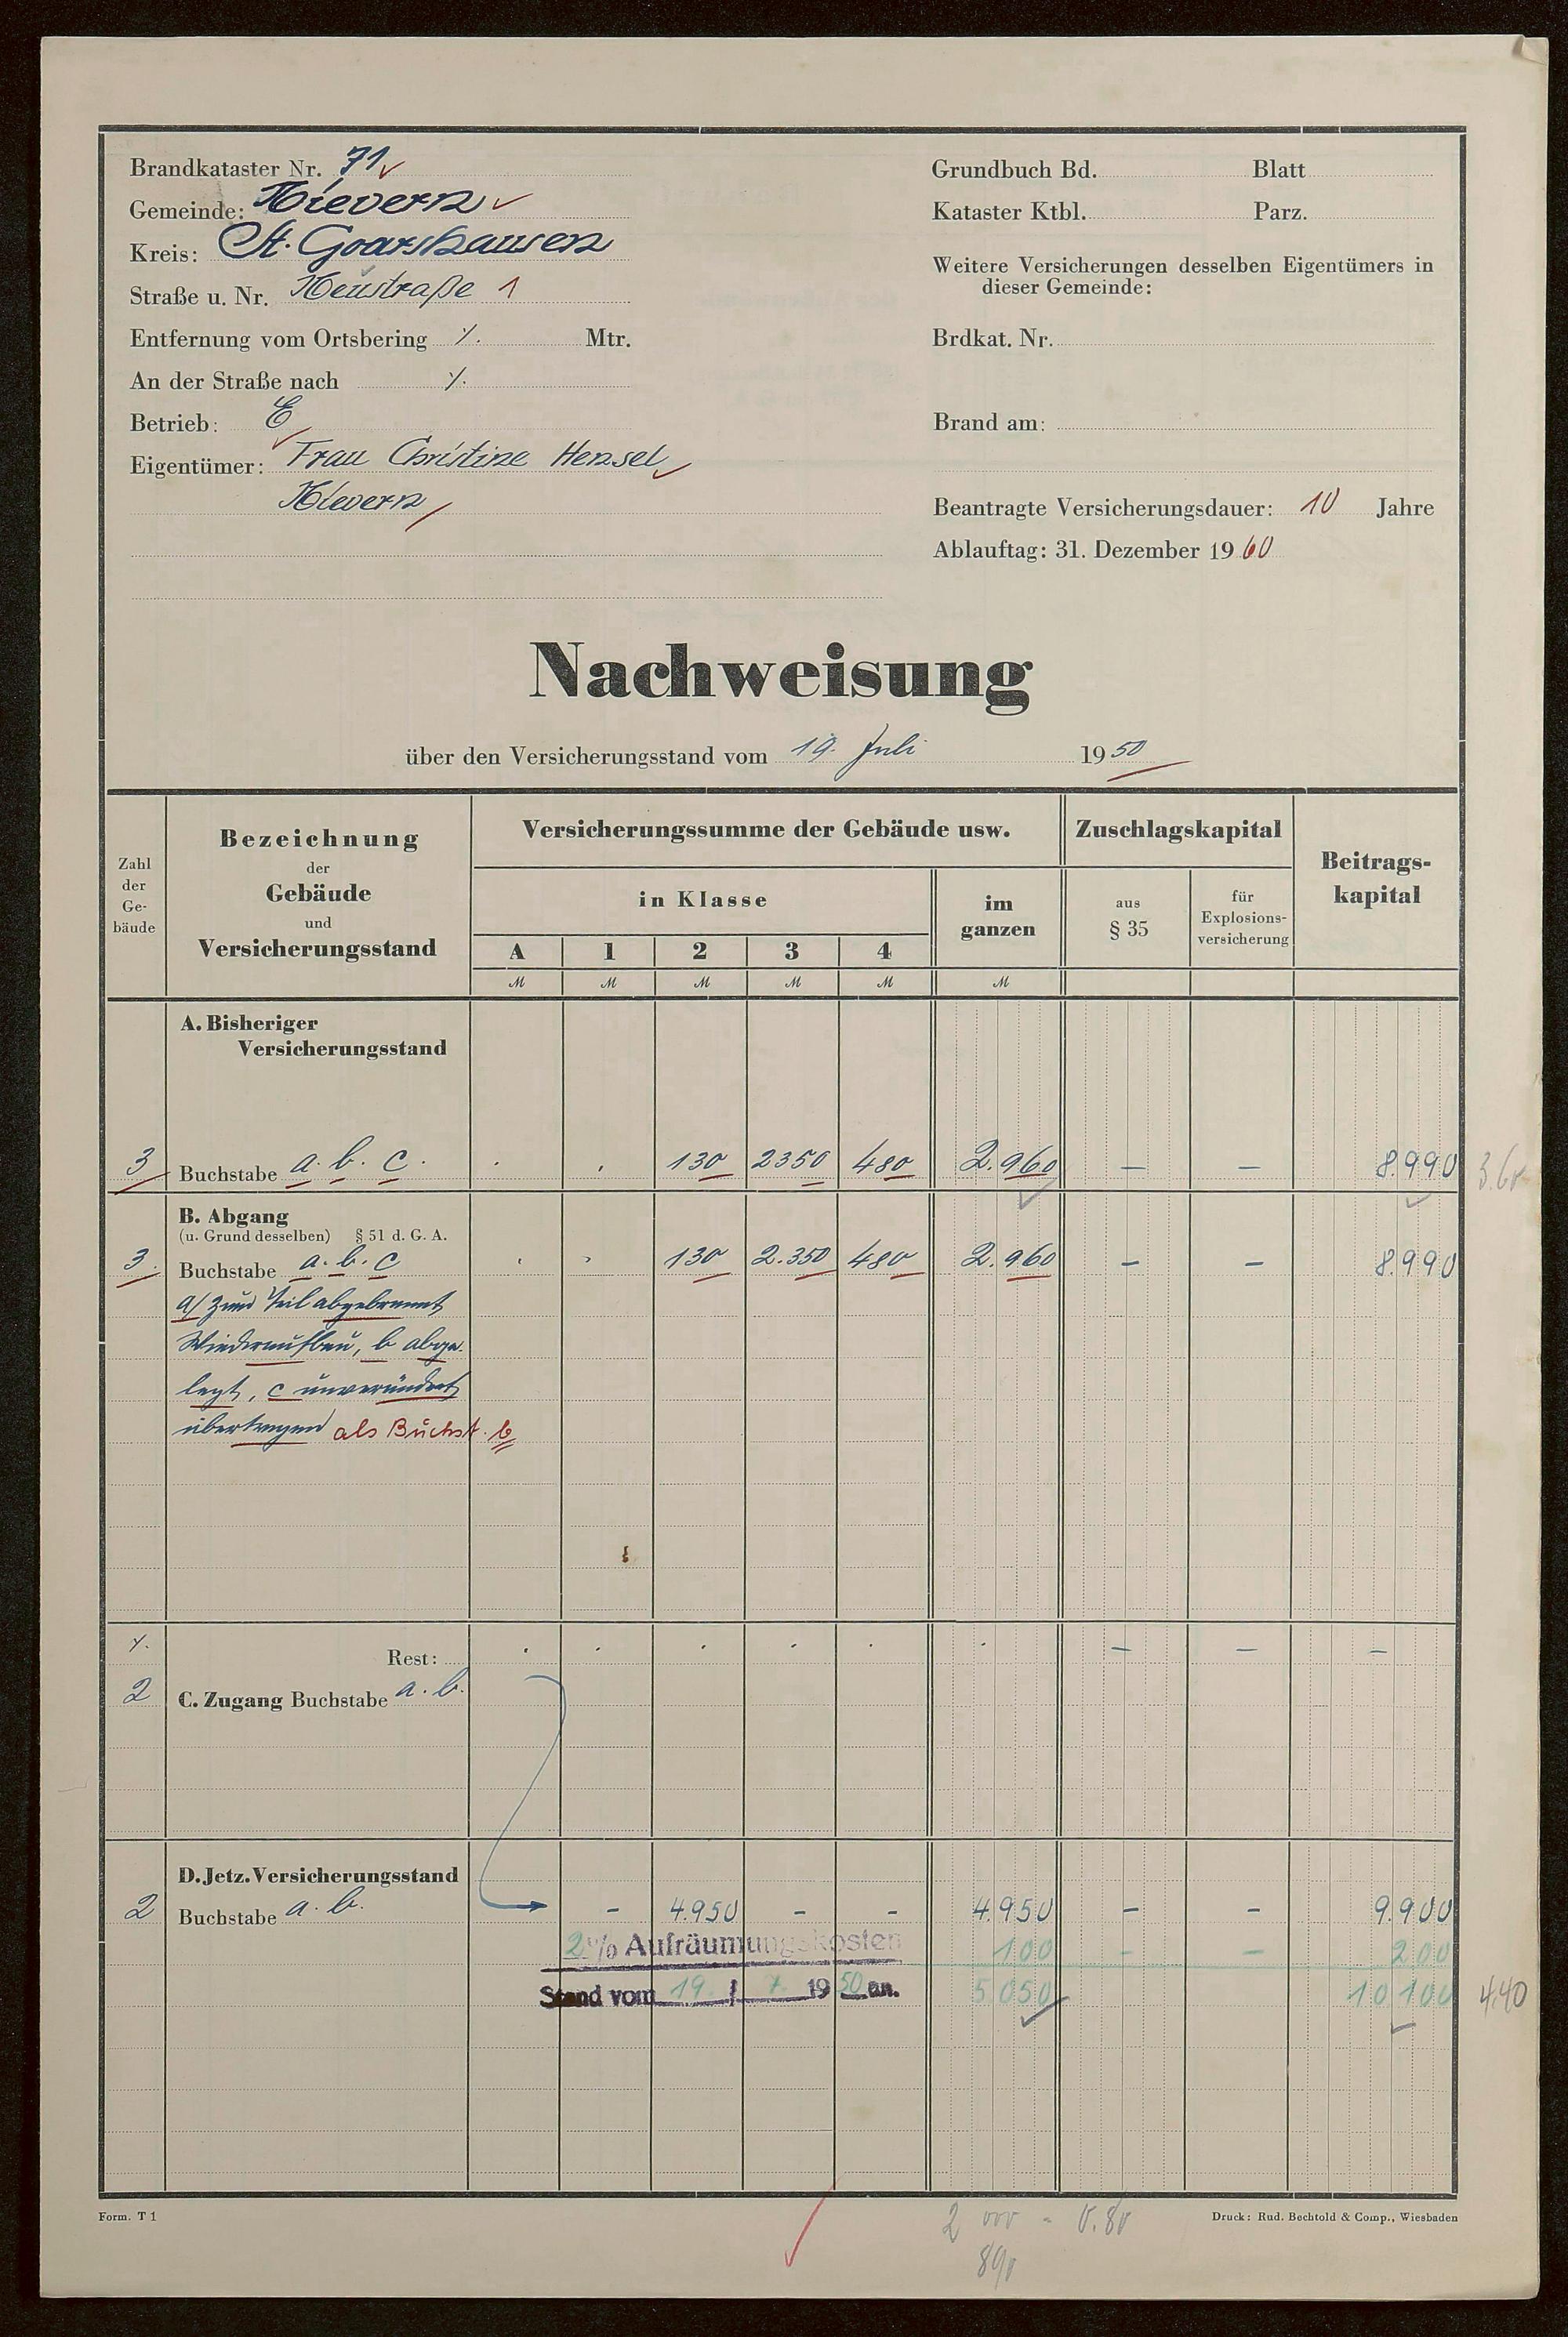 Brandkataster Nr. 71
Gemeinde: Nievern
Kreis: St. Goarshausen
Straße u. Nr. Neustraße 1
Entfernung vom Ortsbering ·/. Mtr.
An der Straße nach ·/.
Betrieb: E
Eigentümer: Frau Christine Hensel
Nievern
Grundbuch Bd. Blatt
Kataster Ktbl. Parz.
Weitere Versicherungen desselben Eigentümers in
dieser Gemeinde:
Brdkat. Nr.
Brand am:
Beantragte Versicherungsdauer: 10 Jahre
Ablauftag: 31. Dezember 1960
Nachweisung
über den Versicherungsstand vom 19. Juli 1950
Zahl der Ge-bäude
Bezeichnung
der
Gebäude
und
Versicherungsstand
Versicherungssumme der Gebäude usw.
in Klasse
A 1 2 3 4
im ganzen
M M M M M M
Zuschlagskapital
aus § 35
für Explosions-versicherung
Beitrags-kapital
A. Bisheriger
Versicherungsstand
3 Buchstabe a. b. c. . . 130 2350 480 2.960 — — 8.990
B. Abgang
(u. Grund desselben) § 51 d. G. A.
3. Buchstabe a. b. c . . 130 2.350 480 2.960 — — 8.990
a/ zum Teil abgebrannt
Wiederaufbau, b abge-
legt, c unverändert
übertragen als Buchst. b
·/. Rest: . . . . . . — — —
2 C. Zugang Buchstabe a. b.
D. Jetz. Versicherungsstand
2 Buchstabe a. b. - 4.950 - - 4.950 - - 9.900
2% Aufräumungskosten 100 - - 200
Stand vom 19. / 7. 1950 an. 5.050 10.100 4.40
Form. T 1
Druck: Rud. Bechtold & Comp., Wiesbaden
2 000 = 0.80
890